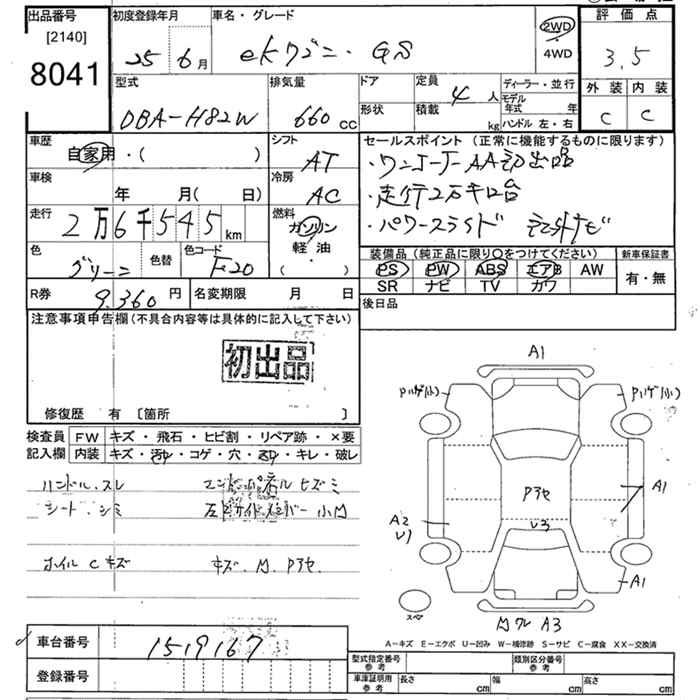 出品番号
[2140]
8041
初度登録年月
25年 6月
車名・グレード
ekワゴン・GS
2WD
4WD
評価点
3.5
外装 内装
C C
型式
DBA-H82W
排気量
660 CC
ドア
形状
定員
4 人
積載
kg
ディーラー・並行
モデル年式 年
ハンドル 左・右
車歴
自家用・( )
シフト
AT
車検
年 月( 日)
冷房
AC
走行
2万6千545km
燃料
ガソリン
軽油
・( )
色
グリーン
色替
色コード
F20
R券
9,360円
名変期限 月 日
セールスポイント (正常に機能するものに限ります)
・ワンオーナーAA初出品
・走行2万キロ台
・パワースライド 社外ナビ
装備品(純正品に限り○をつけてください)
PS PW ABS エアB AW
SR ナビ TV カワ
新車保証書
有・無
後日品
注意事項申告欄(不具合内容等は具体的に記入して下さい)
初出品
修復歴 有 [箇所 ]
検査員記入欄
FW キズ・飛石・ヒビ割・リペア跡・×要
内装 キズ・汚れ・コゲ・穴・凹・キレ・破レ
ハンドル スレ
シート シミ
小凹
ホイル C キズ
キズ. 凹. Pアセ.
A1
Pハゲ(小) Pハゲ(小)
Pアセ
U3
A1
A2
U1
A1
スペア
A3
A-キズ E-エクボ U-凹み W-補修跡 S-サビ C-腐食 XX-交換済
車台番号
1519167
登録番号
型式指定番号 参考
類別区分番号 参考
車庫証明用 参考
長さ cm 幅 cm 高さ cm